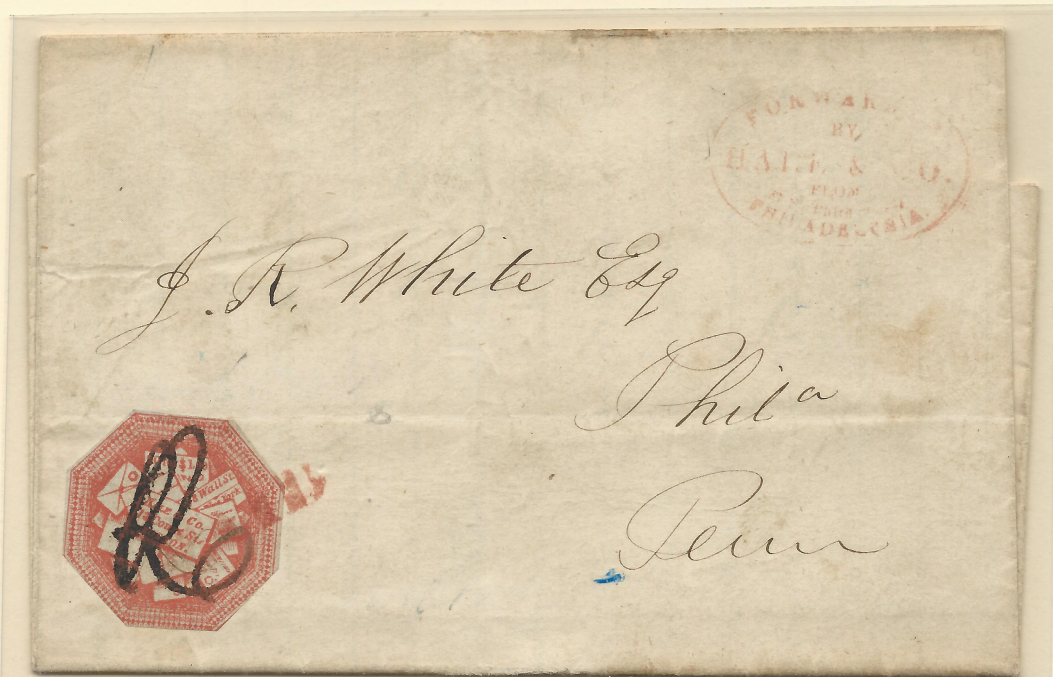 FORWARD
BY
HALE & CO.
FROM
PHILADELPHIA.
J. R. White Esq
Phila
Penn
Wall St.
& Co.